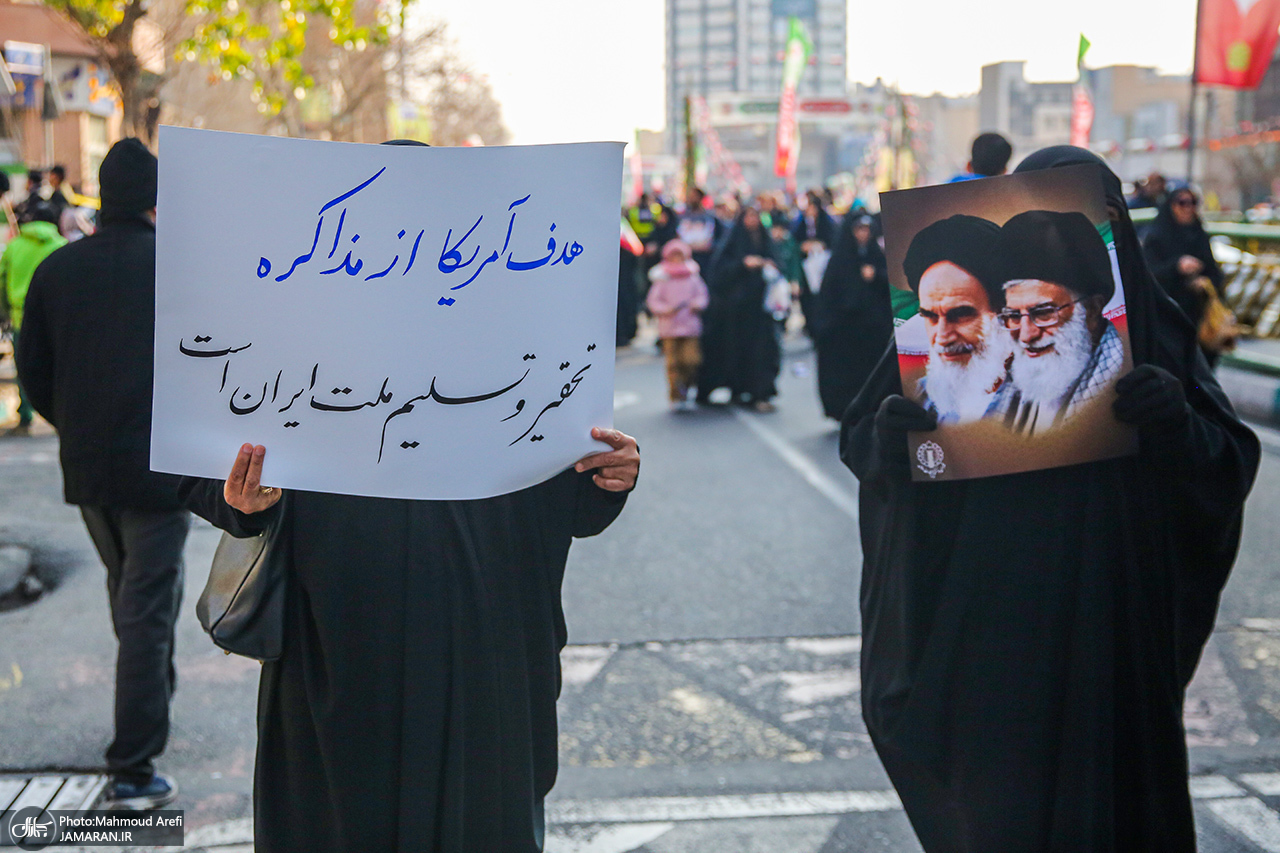 هدف آمریکا از مذاکره
تحقیر و تسلیم ملت ایران است
Photo:Mahmoud Arefi
JAMARAN.IR